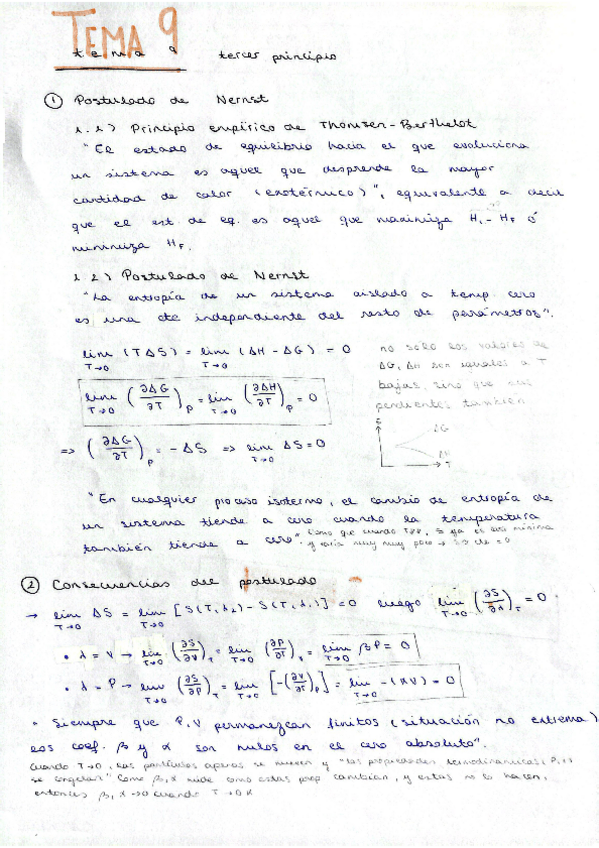 TEMA 9
tema 9 tercer principio
① Postulado de Nernst
1.1) Principio empírico de Thomsen-Berthelot
"El estado de equilibrio hacia el que evoluciona
un sistema es aquel que desprende la mayor
cantidad de calor (exotérmico)", equivalente a decir
que el est. de eq. es aquel que maximiza Hi - HF ó
minimiza HF.
1.2) Postulado de Nernst
"La entropía de un sistema aislado a temp. cero
es una cte independiente del resto de parámetros".
lim T→0 (TΔS) = lim T→0 (ΔH - ΔG) = 0
no solo los valores de
ΔG, ΔH son iguales a T
bajas, sino que sus
pendientes también
lim T→0 (∂ΔG/∂T)p = lim T→0 (∂ΔH/∂T)p = 0
E ΔG
ΔH
T
=> (∂ΔG/∂T)p = -ΔS => lim T→0 ΔS = 0
"En cualquier proceso isotermo, el cambio de entropía de
un sistema tiende a cero cuando la temperatura
también tiende a cero". Como que cuando S ya es mínima
y varía muy muy poco →
② Consecuencias del postulado
→ lim T→0 ΔS = lim T→0 [S(T,λ2) - S(T,λ1)] = 0 luego lim T→0 (∂S/∂λ)T = 0
• λ = V → lim T→0 (∂S/∂V)T = lim T→0 (∂P/∂T)V = lim T→0 βP = 0
• λ = P → lim T→0 (∂S/∂P)T = lim T→0 [-(∂V/∂T)P] = lim T→0 -(αV) = 0
"Siempre que P, V permanezcan finitos (situación no extrema)
los coef. β y α son nulos en el cero absoluto".
Cuando T→0, las partículas apenas se mueven y "las propiedades termodinámicas
se congelan" Como β, α mide como estas prop cambian, y estas no lo hacen,
entonces β, α →0 cuando T→0K